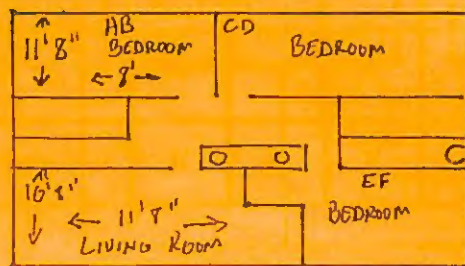 AB
BEDROOM
11'8"
8'
CD
BEDROOM
10'8"
11'8"
LIVING ROOM
EF
BEDROOM